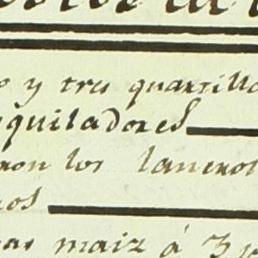 o y tres quartillo
quiladores
ron los laneros
cos
as maiz á 3 p